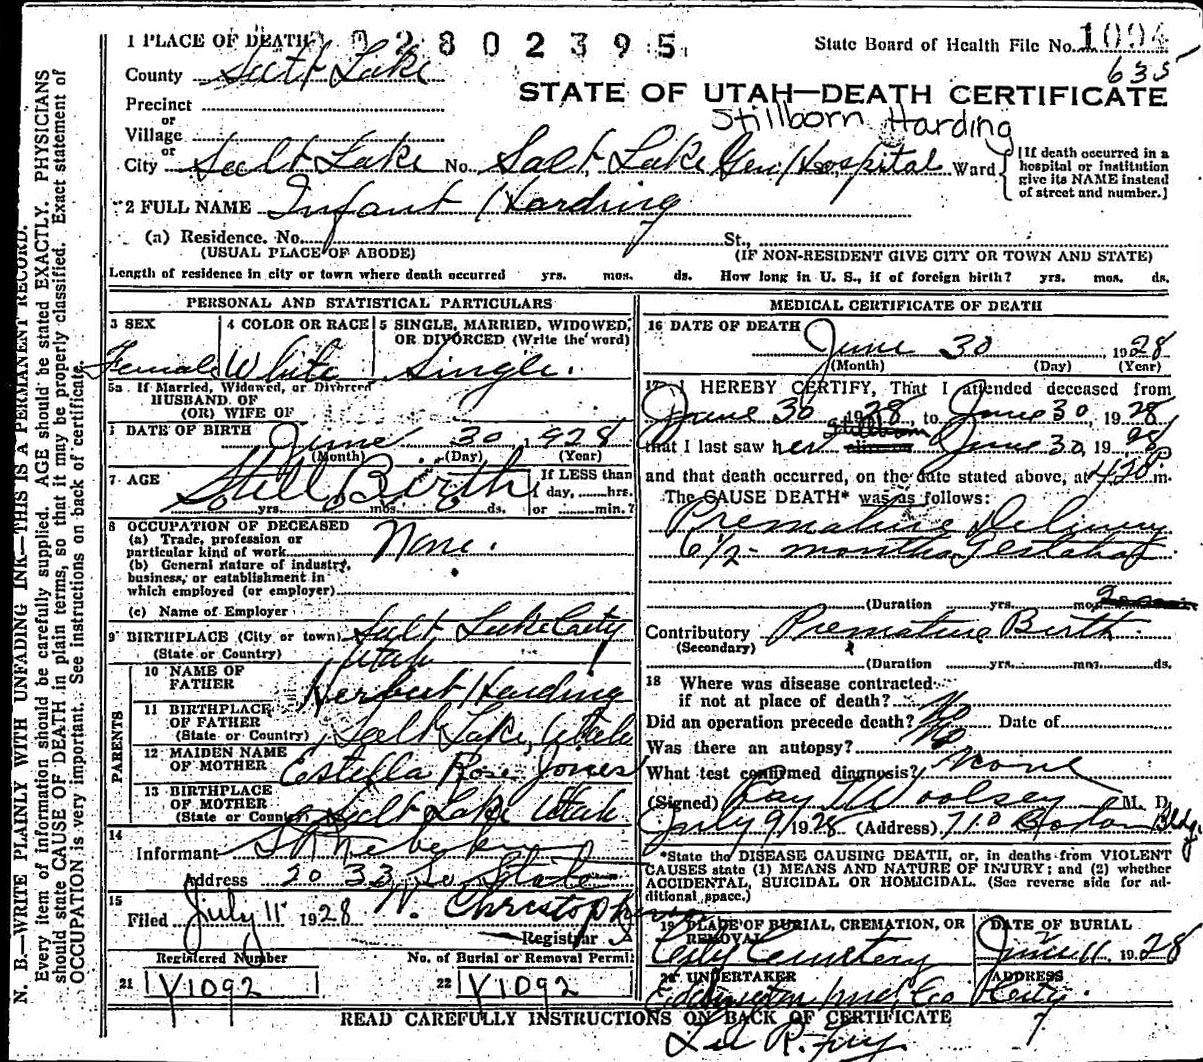 1 PLACE OF DEATH 02802395 State Board of Health File No. 1094
635
County Salt Lake
STATE OF UTAH—DEATH CERTIFICATE
Precinct
or
Village
Stillborn Harding
or
City Salt Lake No. Salt Lake Gen Hospital Ward
[If death occurred in a hospital or institution give its NAME instead of street and number.]
2 FULL NAME Infant Harding
(a) Residence. No. St.,
(USUAL PLACE OF ABODE) (IF NON-RESIDENT GIVE CITY OR TOWN AND STATE)
Length of residence in city or town where death occurred yrs. mos. ds. How long in U. S., if of foreign birth? yrs. mos. ds.
PERSONAL AND STATISTICAL PARTICULARS
3 SEX 4 COLOR OR RACE 5 SINGLE, MARRIED, WIDOWED, OR DIVORCED (Write the word)
Female White Single.
5a If Married, Widowed, or Divorced
HUSBAND OF
(OR) WIFE OF
DATE OF BIRTH June 30, 1928
(Month) (Day) (Year)
7 AGE Still Birth If LESS than
day, hrs.
yrs. mos. ds. or min.?
8 OCCUPATION OF DECEASED
(a) Trade, profession or
particular kind of work None.
(b) General nature of industry,
business, or establishment in
which employed (or employer)
(c) Name of Employer
9 BIRTHPLACE (City or town) Salt Lake City
(State or Country) Utah
PARENTS
10 NAME OF
FATHER Herbert Harding
11 BIRTHPLACE
OF FATHER
(State or Country) Salt Lake, Utah
12 MAIDEN NAME
OF MOTHER Estella Rose Jones
13 BIRTHPLACE
OF MOTHER
(State or Country) Salt Lake Utah
14
Informant
Address 2033 So State
15
Filed July 11 1928 N. Christopherson
Registrar
Registered Number No. of Burial or Removal Permit
21 V1092 22 V1092
MEDICAL CERTIFICATE OF DEATH
16 DATE OF DEATH
June 30 1928
(Month) (Day) (Year)
17 I HEREBY CERTIFY, That I attended deceased from
June 30 1928, to June 30, 1928
that I last saw her stillborn June 30, 1928
and that death occurred, on the date stated above, at 428 P.m.
The CAUSE DEATH* was as follows:
Premature Delivery
6 1/2 - months
(Duration yrs. mos.
Contributory Premature Birth.
(Secondary)
(Duration yrs. mos. ds.
18 Where was disease contracted
if not at place of death?
Did an operation precede death? No Date of
Was there an autopsy? No
What test confirmed diagnosis? None
(Signed) Ray T Woolsey M. D.
July 9, 1928 (Address) 710 Boston Bldg.
*State the DISEASE CAUSING DEATH, or, in deaths from VIOLENT
CAUSES state (1) MEANS AND NATURE OF INJURY; and (2) whether
ACCIDENTAL, SUICIDAL OR HOMICIDAL. (See reverse side for ad-
ditional space.)
19 PLACE OF BURIAL, CREMATION, OR REMOVAL DATE OF BURIAL
City Cemetery 11, 1928
20 UNDERTAKER ADDRESS
City.
READ CAREFULLY INSTRUCTIONS ON BACK OF CERTIFICATE
7
N. B.—WRITE PLAINLY WITH UNFADING INK—THIS IS A PERMANENT RECORD.
Every item of information should be carefully supplied. AGE should be stated EXACTLY. PHYSICIANS
should state CAUSE OF DEATH in plain terms, so that it may be properly classified. Exact statement of
OCCUPATION is very important. See instructions on back of certificate.